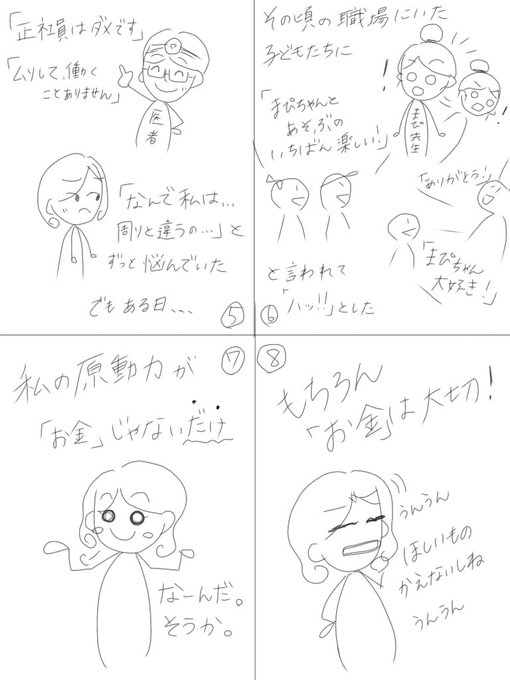 「正社員はダメです」
「ムリして、働く
ことありません」
医者
「なんで私は…
周りと違うの…」と
ずっと悩んでいた
でもある日、、、
⑤
その頃の職場にいた
子どもたちに
「まぴちゃんと
あそぶの
いちばん楽しい!」
!
まぴ先生
!
「ありがとう!」
「まぴちゃん
大好き!」
と言われて
「ハッ!!」とした
⑥
⑦
私の原動力が
「お金」じゃないだけ
なーんだ。
そうか。
⑧
もちろん
「お金」は大切!
うんうん
ほしいもの
かえないしね
うんうん